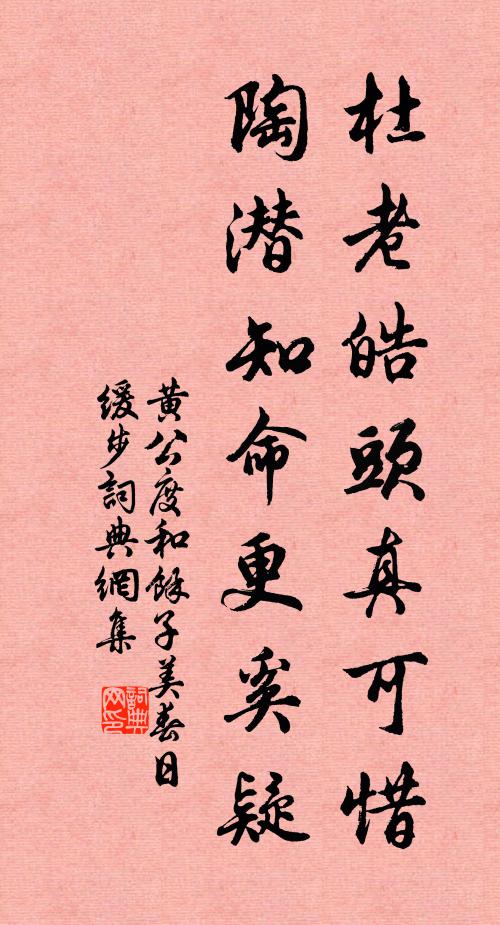 杜老皓頭真可惜
陶潜知命更奚疑
黄公度和餘子美春日
缓步詞典網集
詞典网印